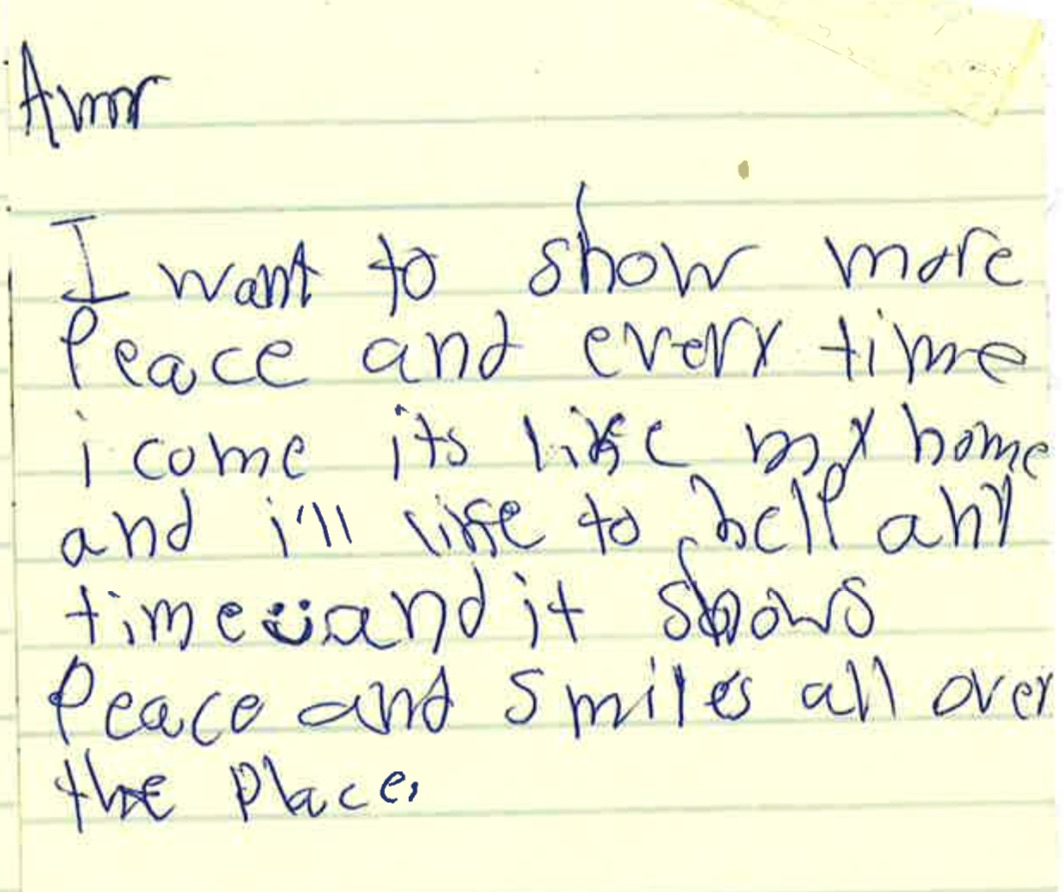 Amor
I want to show more
Peace and every time
i come its like my home
and i'll like to help any
time and it shows
Peace and smiles all over
the place.